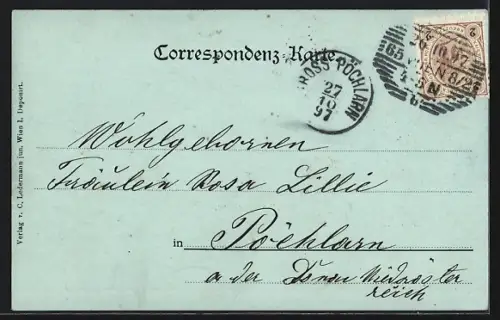 Correspondenz-Karte
GROSS PÖCHLARN
27
10
97
26 10 97
65
WIEN 8/2
4-5N
2
Wohlgebornen
Fräulein Rosa Lillie
in Pöchlarn
a der Donau Niedröster
reich
Verlag v. C. Ledermann jun. Wien I. Deponirt.